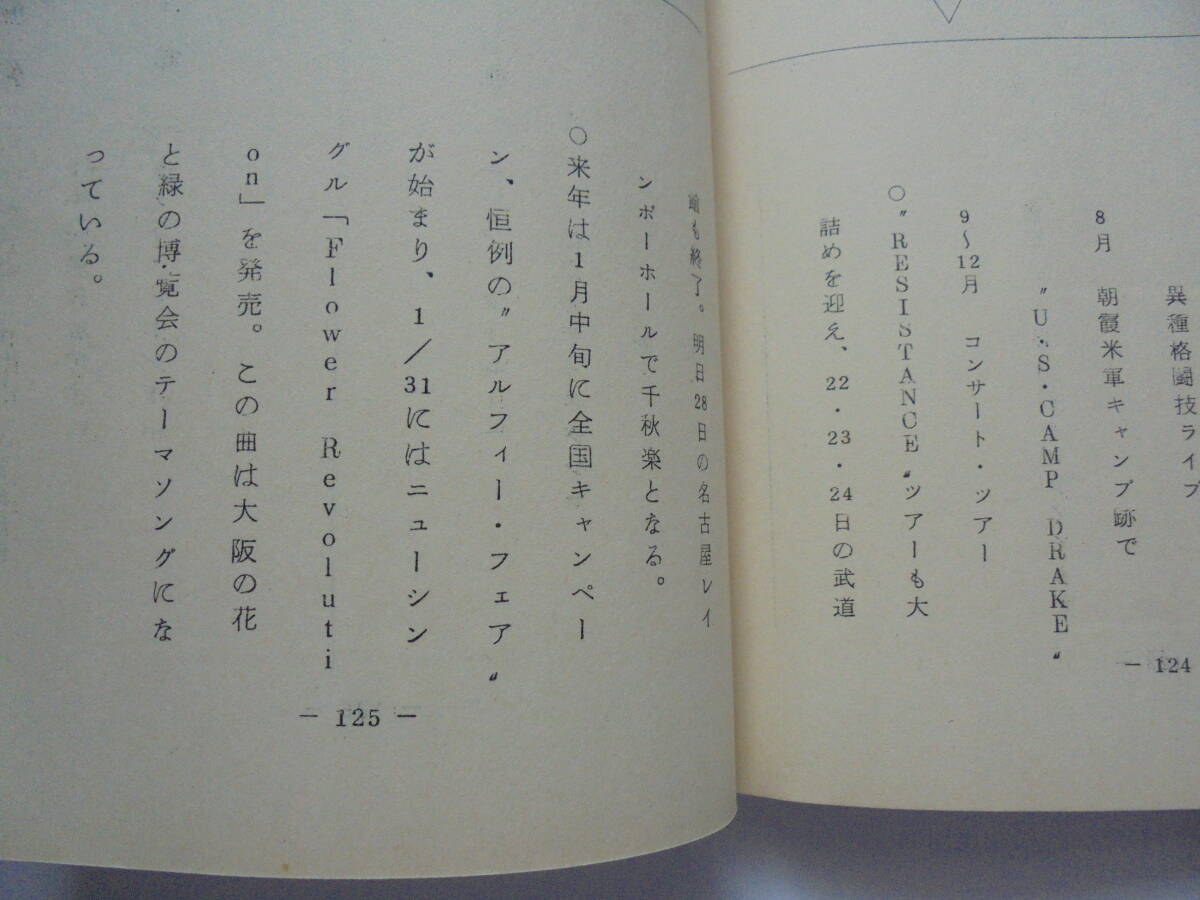 異種格闘技ライブ
8月 朝霞米軍キャンプ跡で
〝U.S.CAMP DRAKE〟
9〜12月 コンサート・ツアー
○〝RESISTANCE〟ツアーも大
詰めを迎え、22・23・24日の武道
－124
も終了。明日28日の名古屋レイ
ンボーホールで千秋楽となる。
○来年は1月中旬に全国キャンペー
ン、恒例の〝アルフィー・フェア〟
が始まり、1/31にはニューシン
グル「Flower Revoluti
on」を発売。この曲は大阪の花
と緑の博覧会のテーマソングにな
っている。
－125－